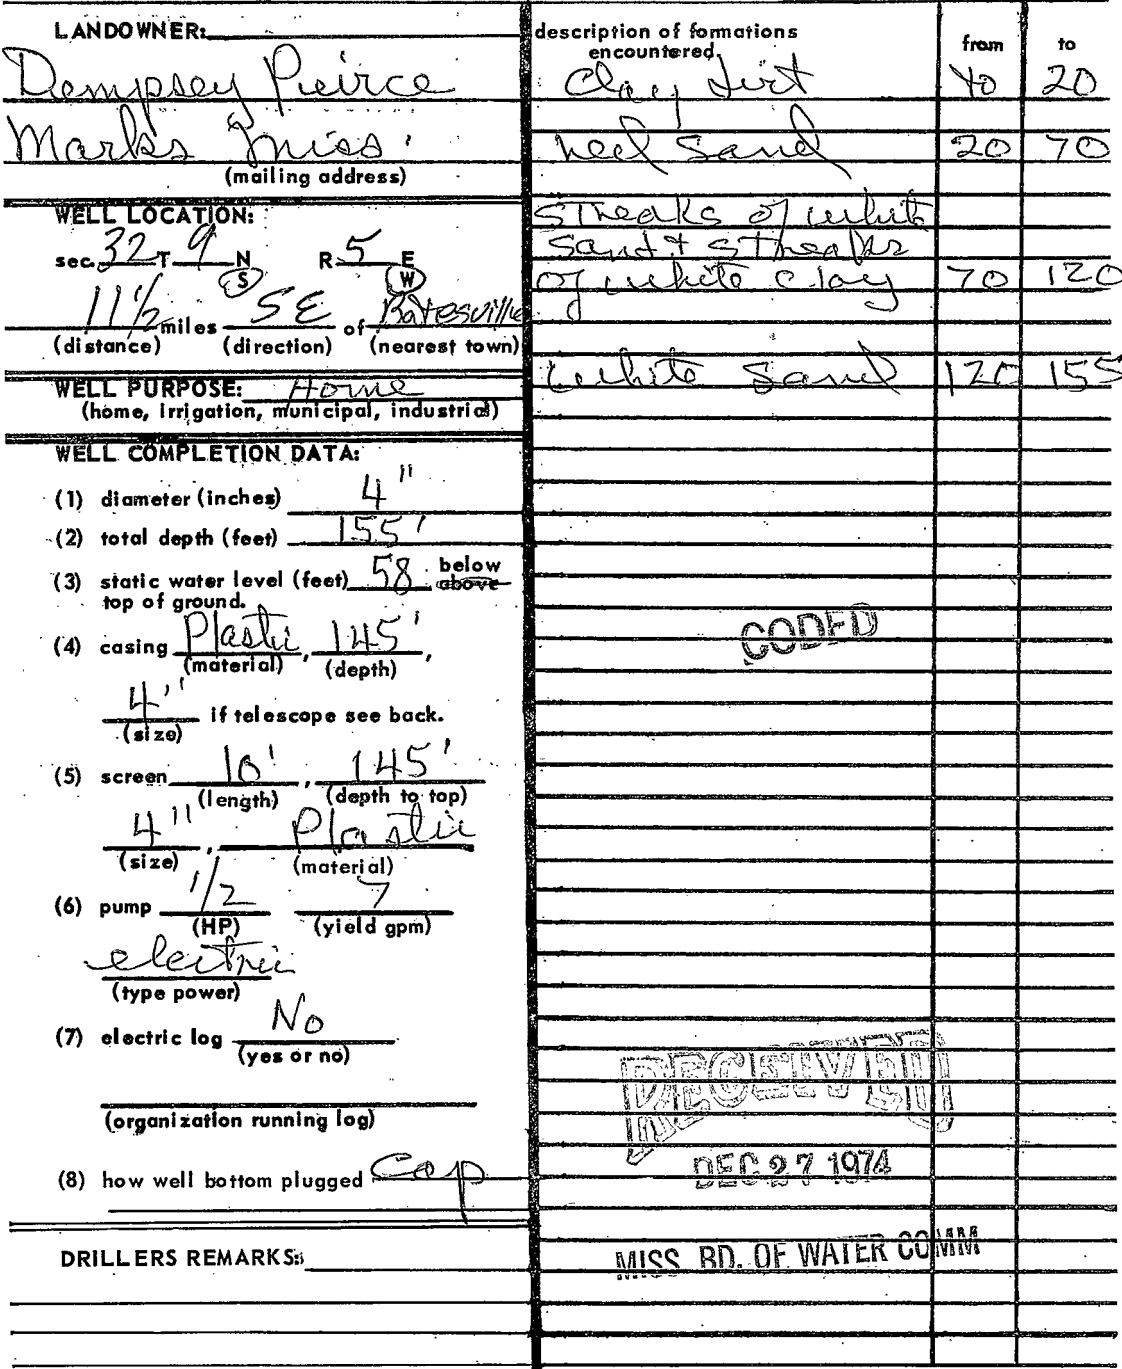 LANDOWNER:
Dempsey Peirce
Marks Miss.
(mailing address)
WELL LOCATION:
sec. 32 T 9 N S R 5 E W
11 1/2 miles SE of Batesville
(distance) (direction) (nearest town)
WELL PURPOSE: Home
(home, irrigation, municipal, industrial)
WELL COMPLETION DATA:
(1) diameter (inches) 4"
(2) total depth (feet) 155'
(3) static water level (feet) 58 below above
top of ground.
(4) casing Plastic, 145',
(material) (depth)
4" if telescope see back.
(size)
(5) screen 10', 145'
(length) (depth to top)
4", Plastic
(size) (material)
(6) pump 1/2 7
(HP) (yield gpm)
electric
(type power)
(7) electric log No
(yes or no)
(organization running log)
(8) how well bottom plugged Cap
DRILLERS REMARKS:
description of formations
encountered from to
Clay dirt 20
Red Sand 20 70
streaks of white
sand & streaks
of white clay 70 120
white sand 120 155
CODED
RECEIVED
DEC 27 1974
MISS. BD. OF WATER COMM